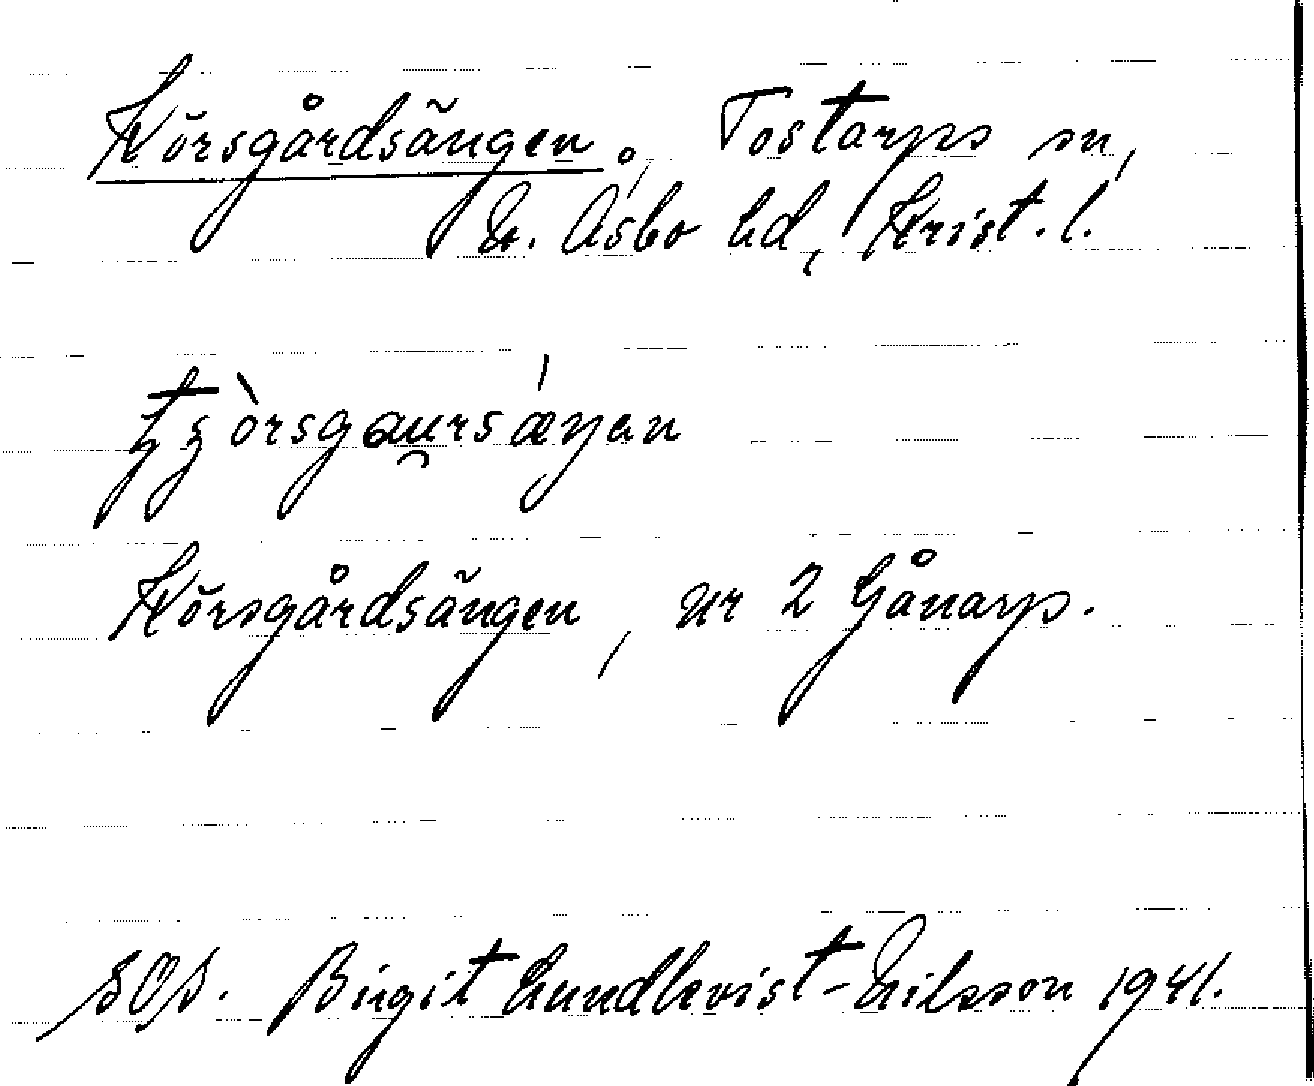 Körsgårdsängen, Tostarps sn,
N. Åsbo hd, Krist. l.
tʒòrsgau̯rsǽŋan
Körsgårdsängen, nr 2 Gånarp.
SOS. Birgit Lundkvist-Nilsson 1941.